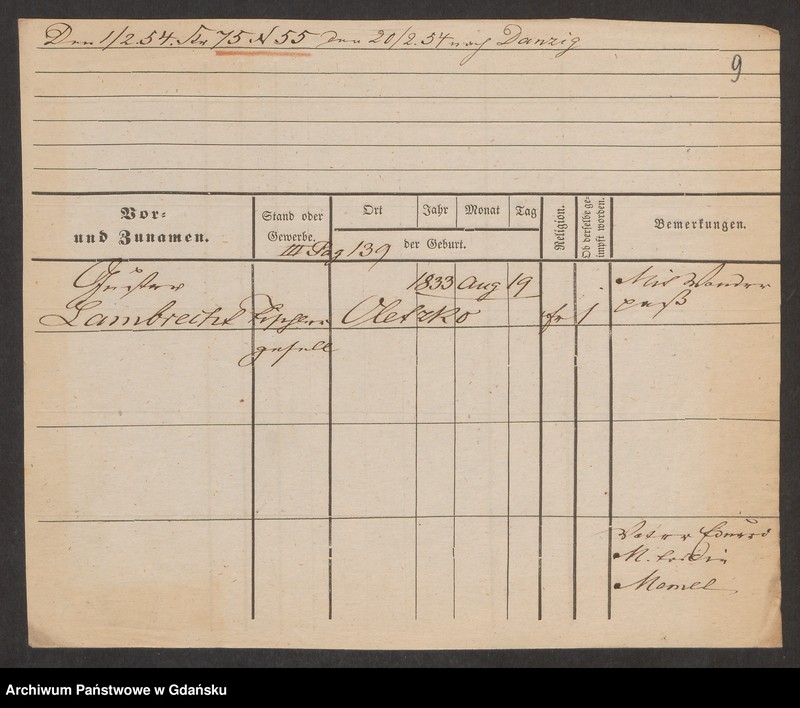 Den 1/2.54. Nr 75 N 55 den 20/2.54 nach Danzig
9
Vor-
und Zunamen.
Stand oder
Gewerbe.
Ort
Jahr
Monat
Tag
der Geburt.
Religion.
Ob derselbe ge-
impft worden.
Bemerkungen.
III Pag 139
Gustav
Lambrecht
Tischler
gesell
Oletzko
1833
Aug
19
1
Mit Wander
paß
Vater Eduard
M.
Memel
Archiwum Państwowe w Gdańsku